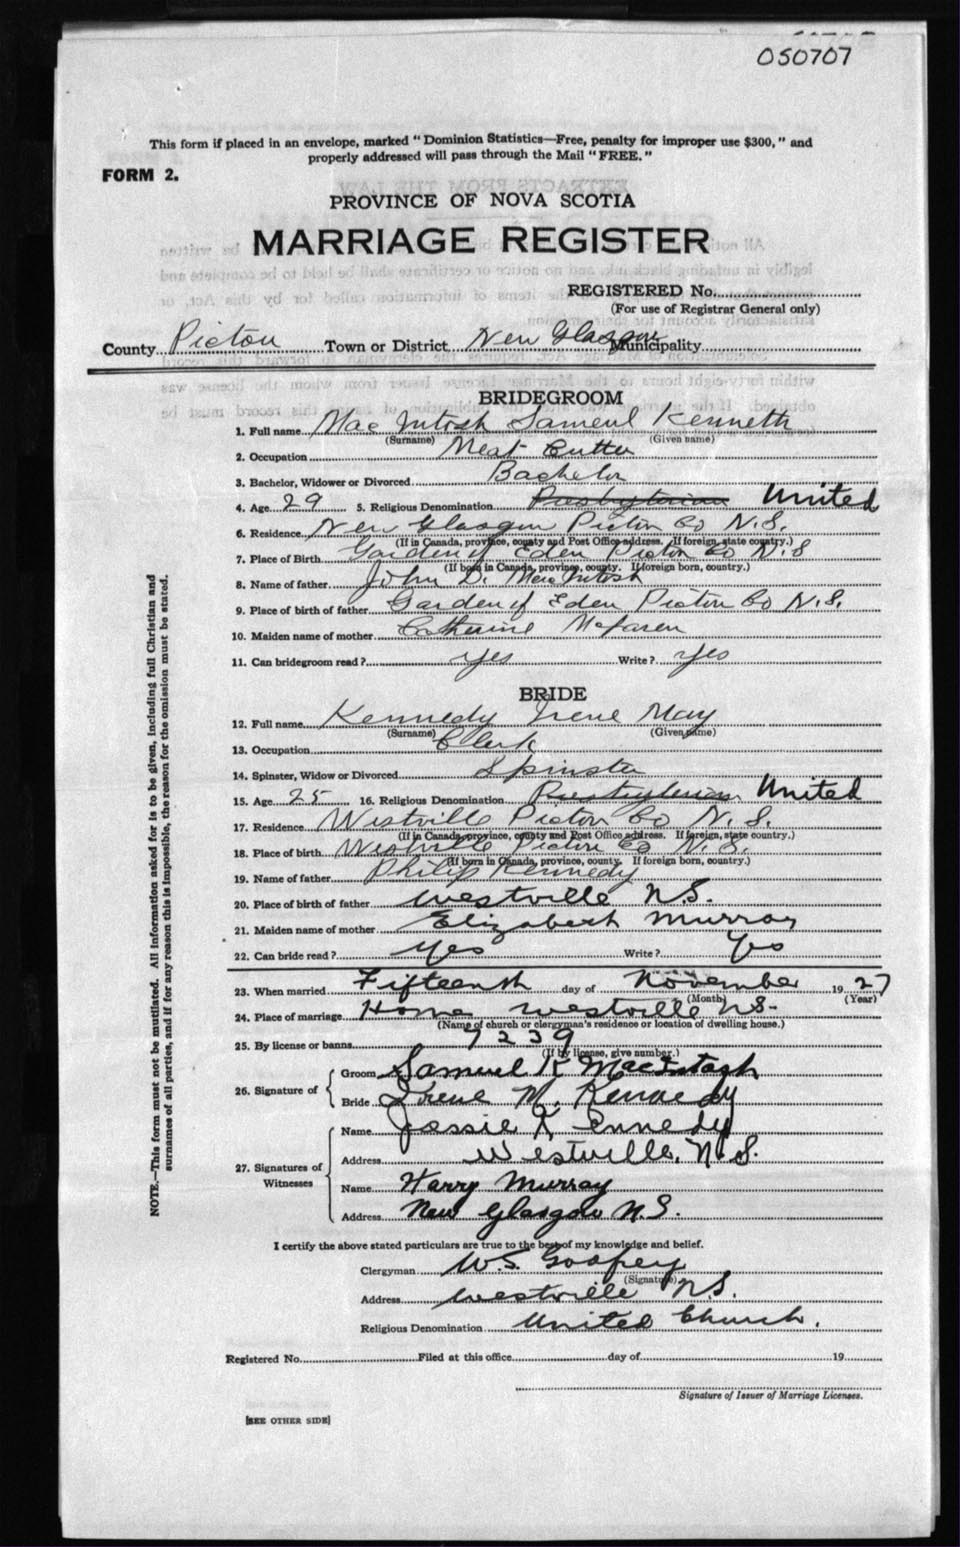 050707
This form if placed in an envelope, marked "Dominion Statistics—Free, penalty for improper use $300," and
properly addressed will pass through the Mail "FREE."
FORM 2.
PROVINCE OF NOVA SCOTIA
MARRIAGE REGISTER
REGISTERED No.
(For use of Registrar General only)
County Pictou Town or District New Glasgow Municipality
BRIDEGROOM
1. Full name Mac Intosh Sameul Kenneth
(Surname) (Given name)
2. Occupation Meat Cutter
3. Bachelor, Widower or Divorced Bachelor
4. Age 29 5. Religious Denomination Presbyterian United
6. Residence New Glasgow Pictou Co N.S.
(If in Canada, province, county and Post Office address. If foreign, state country.)
7. Place of Birth Garden of Eden Pictou Co N.S
(If born in Canada, province, county. If foreign born, country.)
8. Name of father John D. MacIntosh
9. Place of birth of father Garden of Eden Pictou Co N.S.
10. Maiden name of mother Catherine
11. Can bridegroom read? yes Write? yes
BRIDE
12. Full name Kennedy Irene May
(Surname) (Given name)
13. Occupation Clerk
14. Spinster, Widow or Divorced Spinster
15. Age 25 16. Religious Denomination Presbyterian United
17. Residence Westville Pictou Co N.S.
(If in Canada, province, county and Post Office address. If foreign, state country.)
18. Place of birth Westville Pictou Co N.S.
(If born in Canada, province, county. If foreign born, country.)
19. Name of father Philip Kennedy
20. Place of birth of father Westville N.S.
21. Maiden name of mother Elizabeth Murray
22. Can bride read? Yes Write? Yes
23. When married Fifteenth day of November 1927
(Month) (Year)
24. Place of marriage Home Westville N.S.
(Name of church or clergyman's residence or location of dwelling house.)
25. By license or banns 7239
(If by license, give number.)
26. Signature of Groom Samuel K MacIntosh
Bride Irene M. Kennedy
27. Signatures of Witnesses
Name Jessie Kennedy
Address Westville, N.S.
Name Harry Murray
Address New Glasgow N.S.
I certify the above stated particulars are true to the best of my knowledge and belief.
Clergyman W.S. Godfrey
(Signature)
Address Westville N.S.
Religious Denomination United Church.
Registered No. Filed at this office day of 19
Signature of Issuer of Marriage Licenses.
[SEE OTHER SIDE]
NOTE.—This form must not be mutilated. All information asked for is to be given, including full Christian and
surnames of all parties, and if for any reason this is impossible, the reason for the omission must be stated.